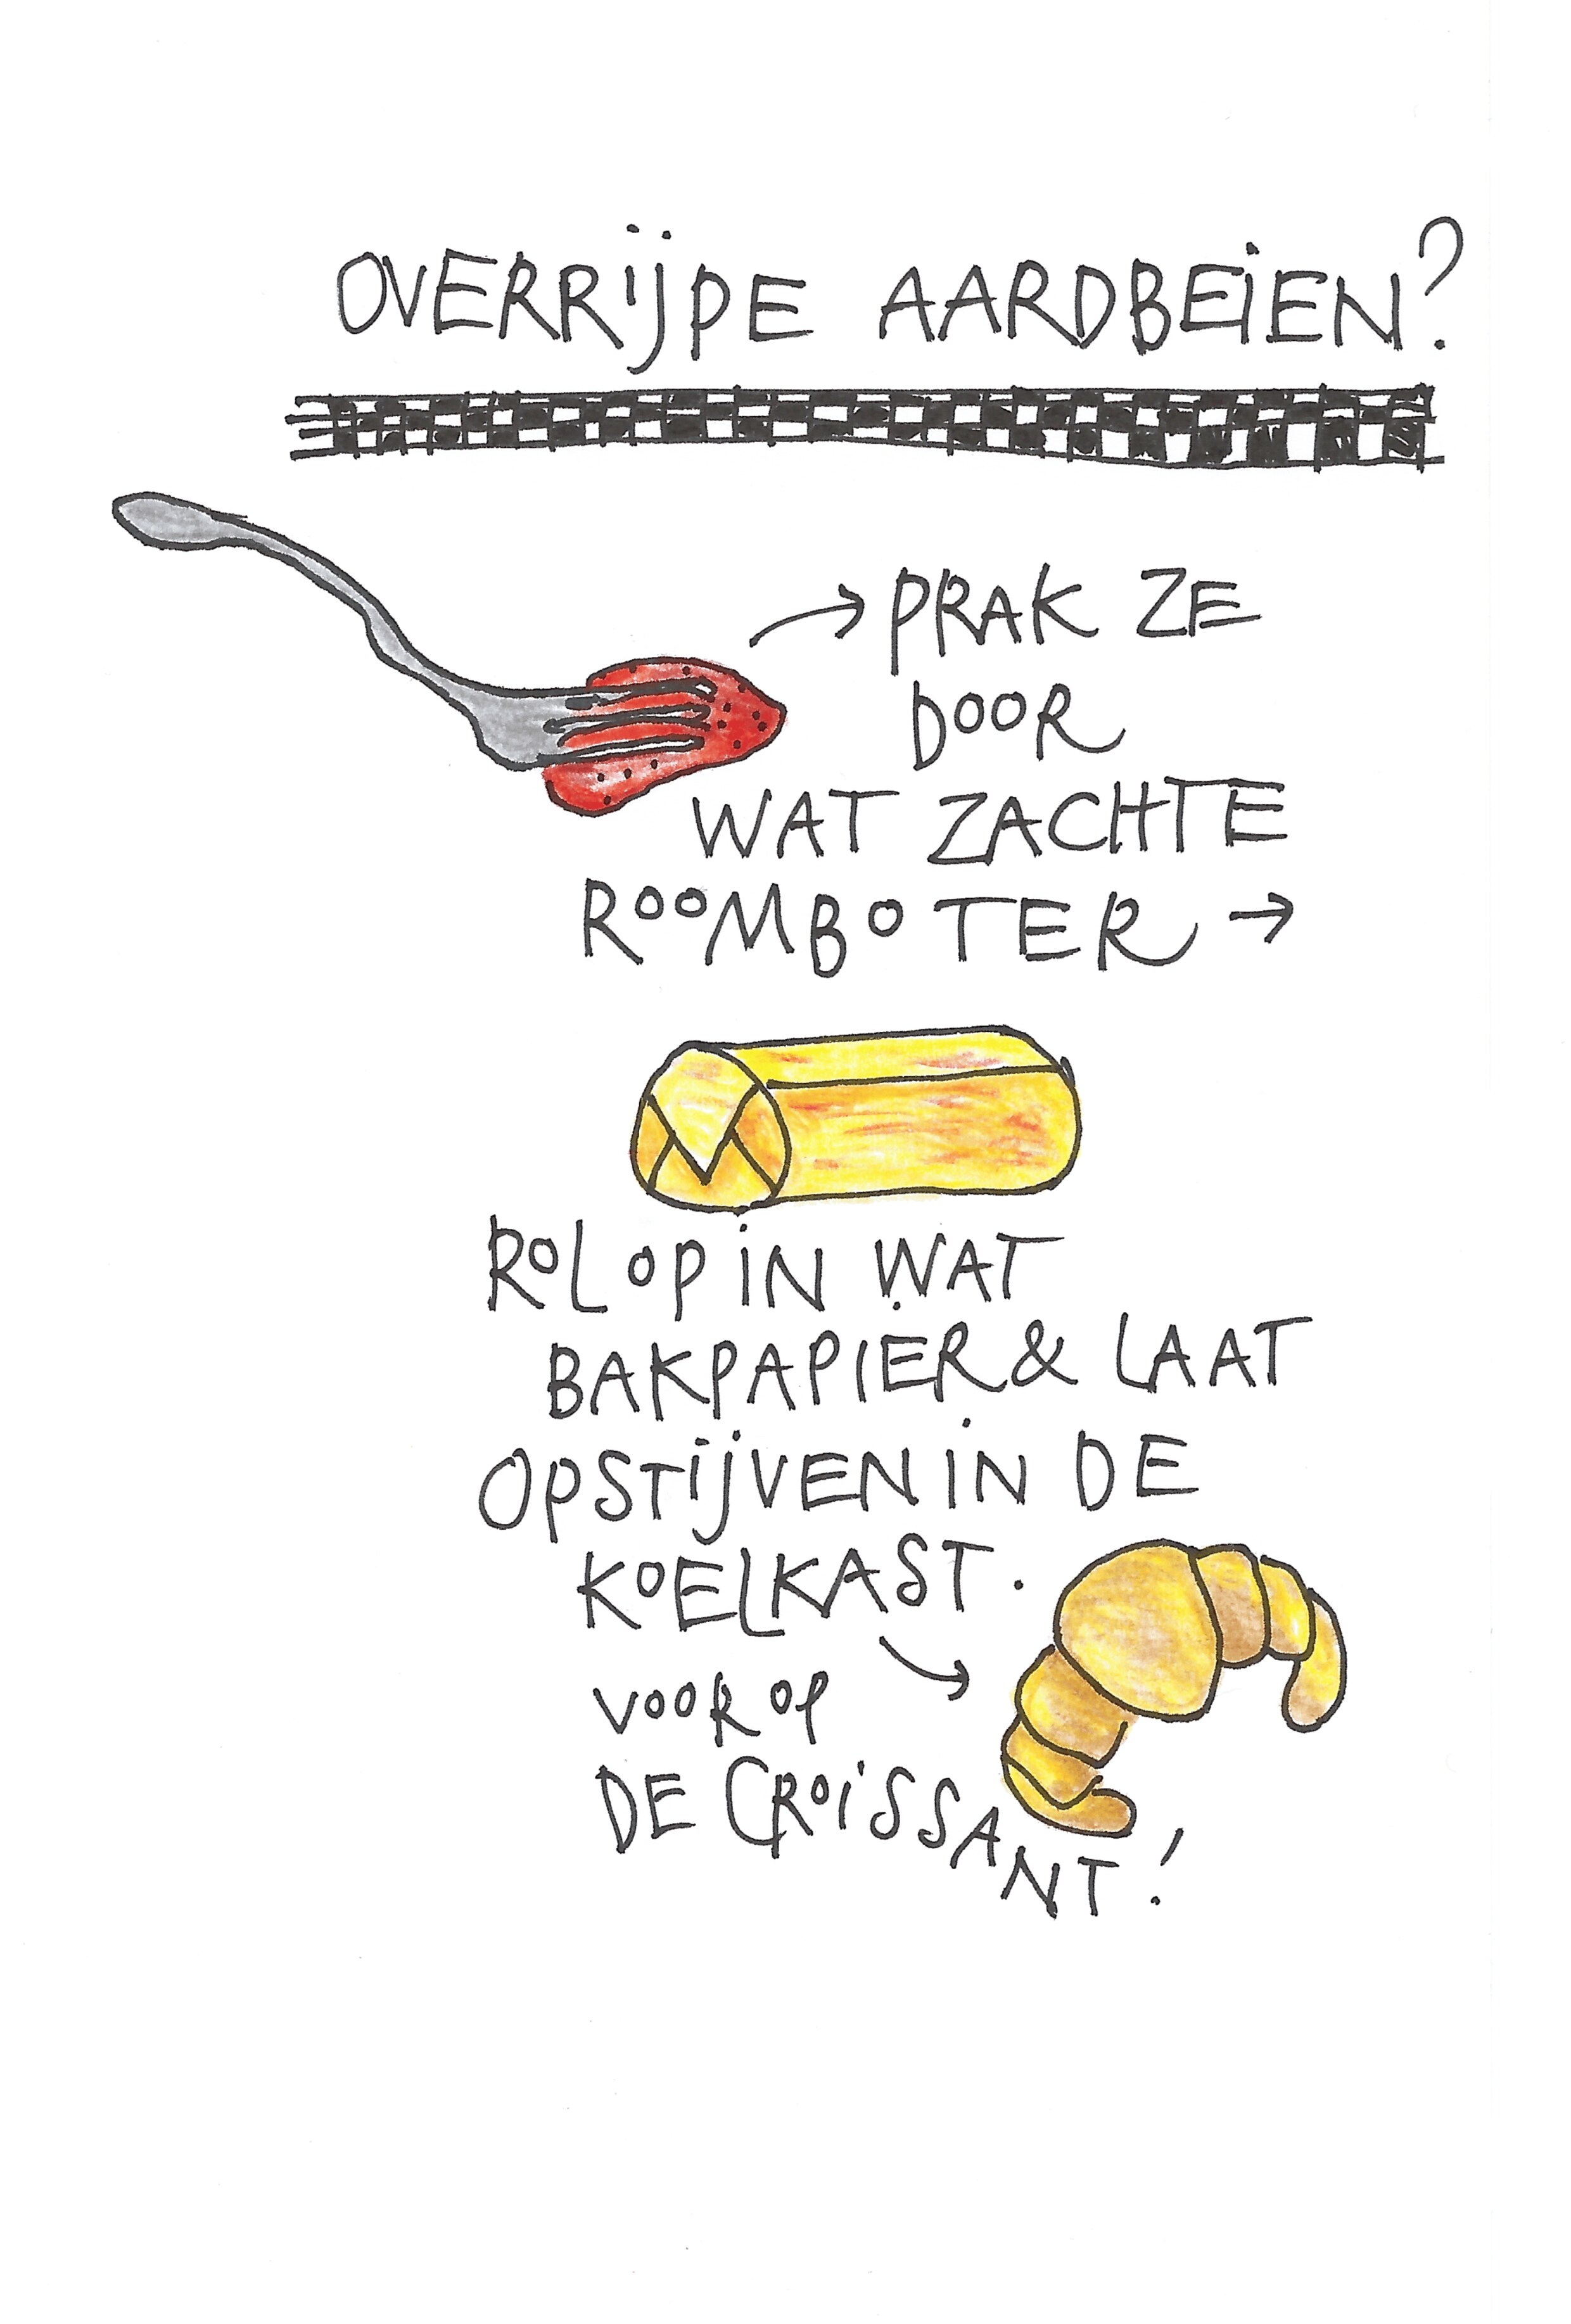 OVERRIJPE AARDBEIEN?
→ PRAK ZE
DOOR
WAT ZACHTE
ROOMBOTER →
ROL OP IN WAT
BAKPAPIER & LAAT
OPSTIJVEN IN DE
KOELKAST.
VOOR OP →
DE CROISSANT!